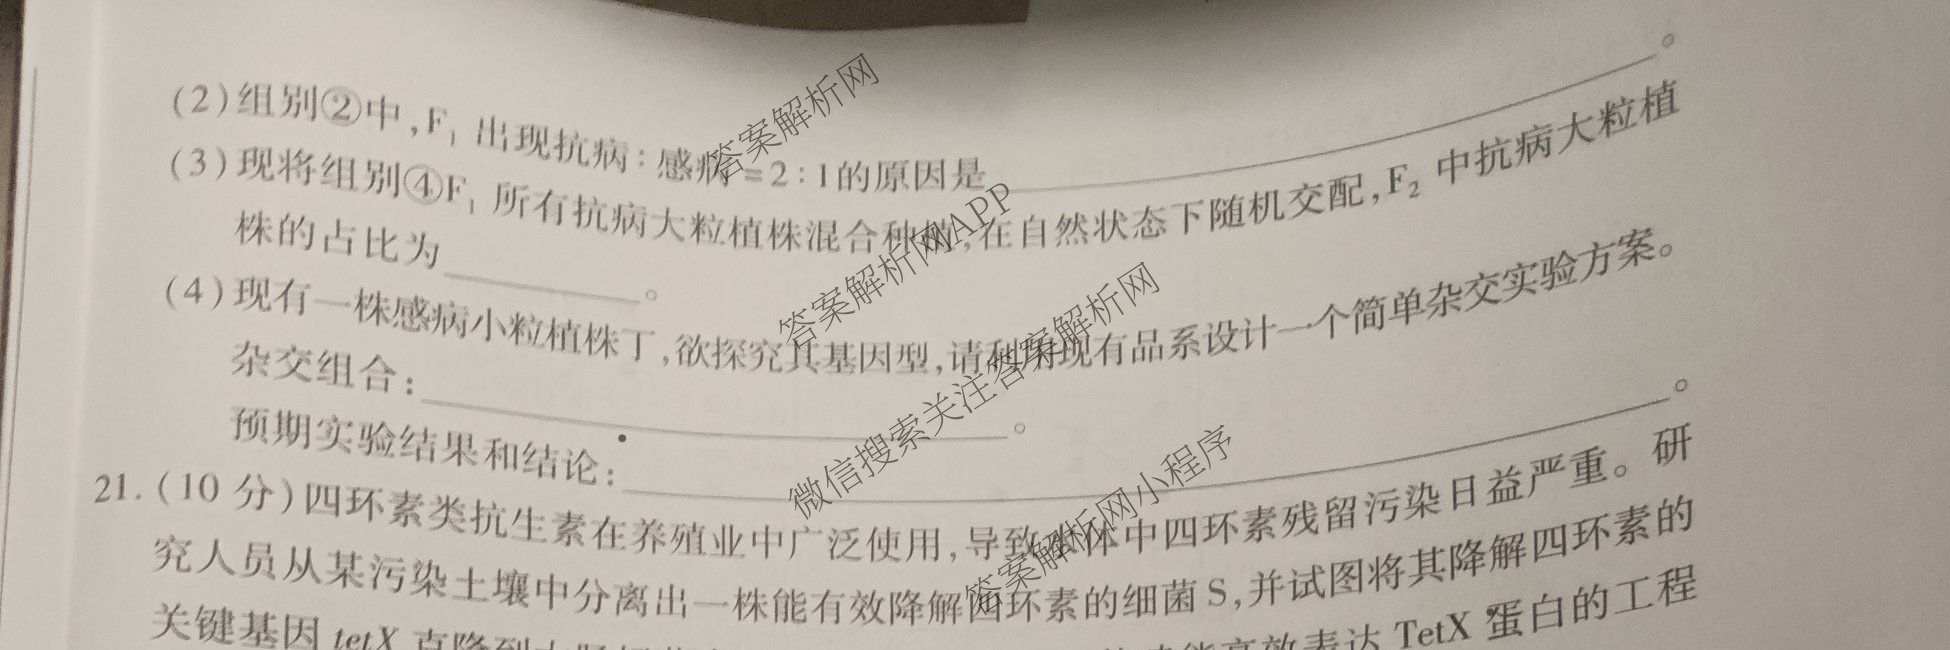 (2)组别②中,F₁ 出现抗病:感病=2:1的原因是 。
(3)现将组别④F₁ 所有抗病大粒植株混合种植,在自然状态下随机交配,F₂ 中抗病大粒植
株的占比为 。
(4)现有一株感病小粒植株丁,欲探究其基因型,请利用现有品系设计一个简单杂交实验方案。
杂交组合: 。
预期实验结果和结论: 。
21.(10 分)四环素类抗生素在养殖业中广泛使用,导致水体中四环素残留污染日益严重。研
究人员从某污染土壤中分离出一株能有效降解四环素的细菌S,并试图将其降解四环素的
关键基因 tetX 克隆到大肠 高效表达 TetX 蛋白的工程
答案解析网
答案解析网APP
微信搜索关注答案解析网
答案解析网小程序